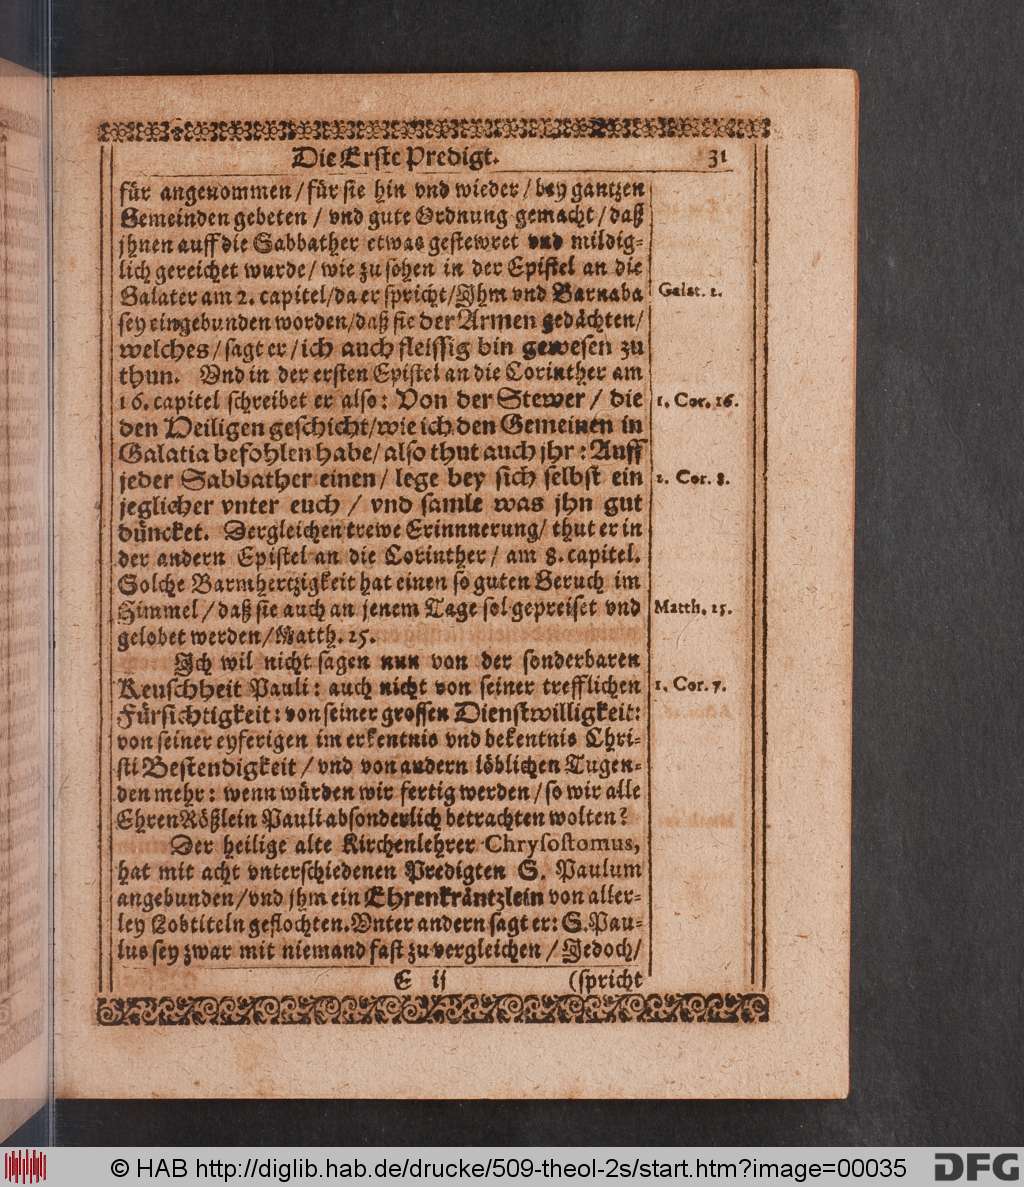 Die Erste Predigt. 31
für angenommen / für sie hin vnd wieder / bey gantzen
Gemeinden gebeten / vnd gute Ordnung gemacht / daß
jhnen auff die Sabbather etwas gestewret vnd mildig-
lich gereichet wurde / wie zu sehen in der Epistel an die
Galater am 2. capitel / da er spricht / Jhm vnd Barnaba
Galat. 2.
sey eingebunden worden / daß sie der Armen gedächten /
welches / sagt er / ich auch fleissig bin gewesen zu
thun. Vnd in der ersten Epistel an die Corinther am
16. capitel schreibet er also: Von der Stewer / die
1. Cor. 16.
den Heiligen geschicht / wie ich den Gemeinen in
Galatia befohlen habe / also thut auch jhr: Auff
jeder Sabbather einen / lege bey sich selbst ein
2. Cor. 8.
jeglicher vnter euch / vnd samle was jhn gut
düncket. Dergleichen trewe Erinnnerung / thut er in
der andern Epistel an die Corinther / am 8. capitel.
Solche Barmhertzigkeit hat einen so guten Geruch im
Himmel / daß sie auch an jenem Tage sol gepreiset vnd
Matth. 25.
gelobet werden / Matth. 25.
Ich wil nicht sagen nun von der sonderbaren
Keuschheit Pauli: auch nicht von seiner trefflichen
1. Cor. 7.
Fürsichtigkeit: von seiner grossen Dienstwilligkeit:
von seiner eyferigen im erkentnis vnd bekentnis Chri-
sti Bestendigkeit / vnd von andern löblichen Tugen-
den mehr: wenn würden wir fertig werden / so wir alle
EhrenRößlein Pauli absonderlich betrachten wolten?
Der heilige alte Kirchenlehrer Chrysostomus,
hat mit acht vnterschiedenen Predigten S. Paulum
angebunden / vnd jhm ein Ehrenkräntzlein von aller-
ley Lobtiteln geflochten. Vnter andern sagt er: S. Pau-
lus sey zwar mit niemand fast zu vergleichen / Jedoch /
E ij (spricht
© HAB http://diglib.hab.de/drucke/509-theol-2s/start.htm?image=00035
DFG